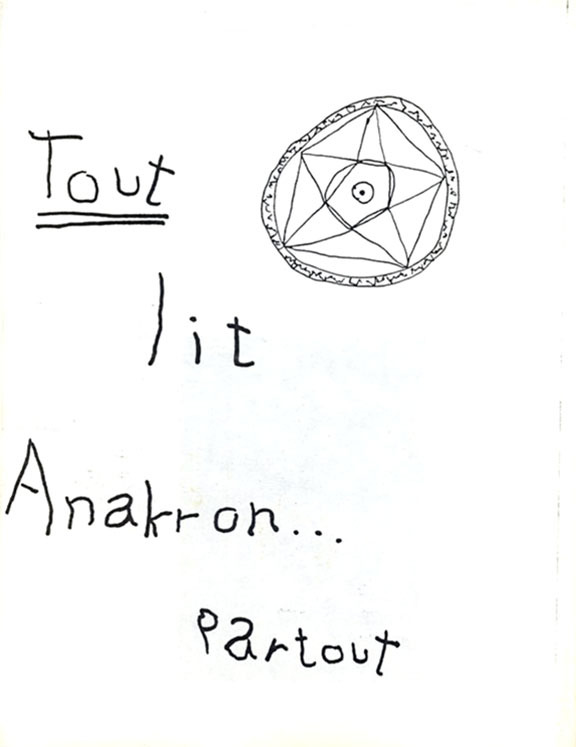 Tout
lit
Anakron...
partout